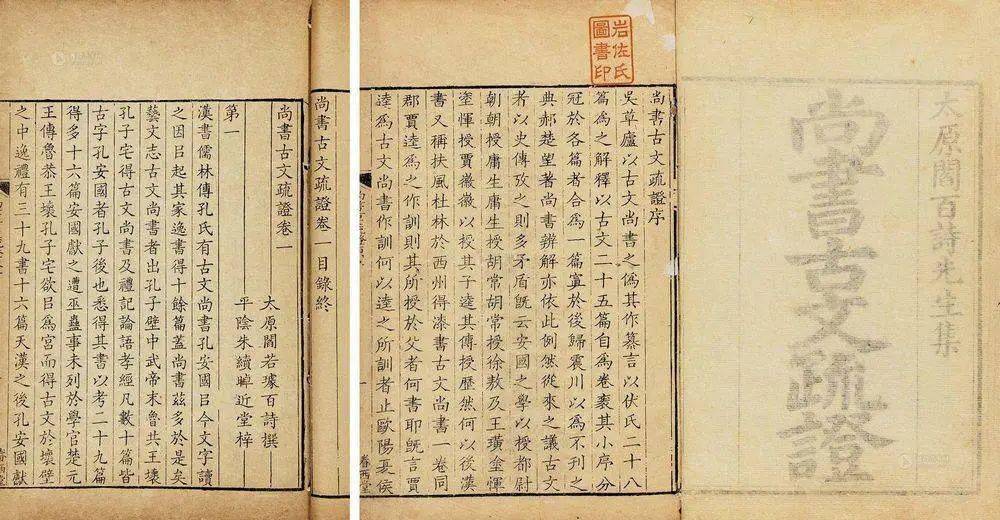 太原閻百詩先生集
尚書古文疏證
岩佐氏
圖書印
尚書古文疏證序
吳草廬以古文尚書之偽其作纂言以伏氏二十八
篇為之解釋以古文二十五篇自為卷袠其小序分
冠於各篇者合為一篇寘於後歸震川以為不刊之
典郝楚望著尚書辨解亦依此例然從來之議古文
者以史傳攷之則多矛盾旣云安國之學以授都尉
朝朝授庸生庸生授胡常胡常授徐敖及王璜塗惲
塗惲授賈徽徽以授其子逵其傳授歷然何以後漢
書又稱扶風杜林於西州得漆書古文尚書一卷同
郡賈逵為之作訓則其所授於父者何書耶旣言賈
逵為古文尚書作訓何以逵之所訓者止歐陽夏侯
眷西堂
尚書古文疏證卷一目錄終
尚書古文疏證卷一
太原閻若璩百詩撰
平陰朱續晫近堂梓
第一
漢書儒林傳孔氏有古文尚書孔安國㠯今文字讀
之因㠯起其家逸書得十餘篇蓋尚書茲多於是矣
藝文志古文尚書者出孔子壁中武帝末魯共王壞
孔子宅得古文尚書及禮記論語孝經凡數十篇皆
古字孔安國者孔子後也悉得其書以考二十九篇
得多十六篇安國獻之遭巫蠱事未列於學官楚元
王傳魯恭王壞孔子宅欲㠯為宮而得古文於壞壁
之中逸禮有三十九書十六篇天漢之後孔安國獻
眷西堂